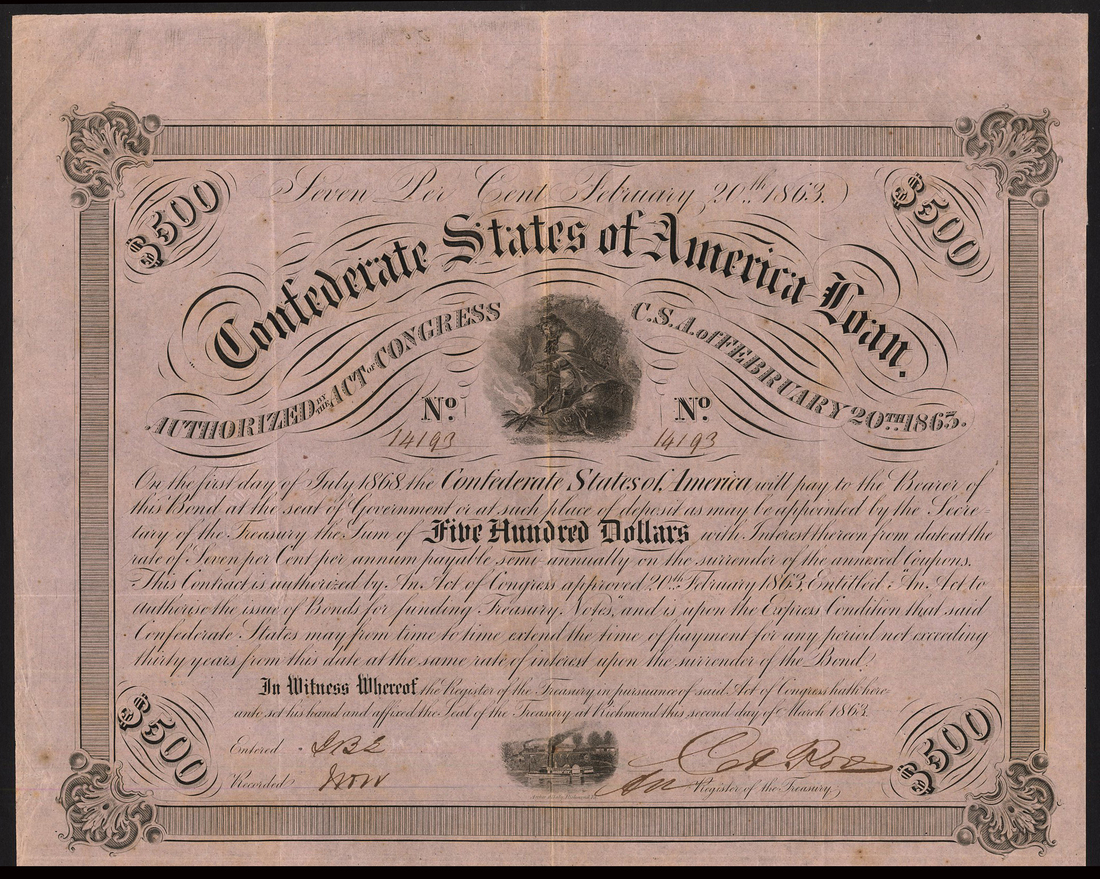 Seven Per Cent February 20th 1863.
$500
$500
Confederate States of America Loan.
AUTHORIZED BY THE ACT OF CONGRESS C.S.A. of FEBRUARY 20TH 1863.
No. No.
14193 14193
On the first day of July 1868, the Confederate States of America will pay to the Bearer of
this Bond at the seat of Government or at such place of deposit as may be appointed by the Secre-
tary of the Treasury the Sum of Five Hundred Dollars with Interest thereon from date at the
rate of Seven per Cent per annum payable semi annually on the surrender of the annexed Coupons.
This Contract is authorized by An Act of Congress approved 20th February 1863, Entitled "An Act to
authorise the issue of Bonds for funding Treasury Notes," and is upon the Express Condition that said
Confederate States may from time to time extend the time of payment for any period not exceeding
thirty years from this date at the same rate of interest upon the surrender of the Bond.
In Witness Whereof the Register of the Treasury in pursuance of said Act of Congress hath here-
unto set his hand and affixed the Seal of the Treasury at Richmond this second day of March 1863.
$500
$500
Entered
Recorded
Register of the Treasury